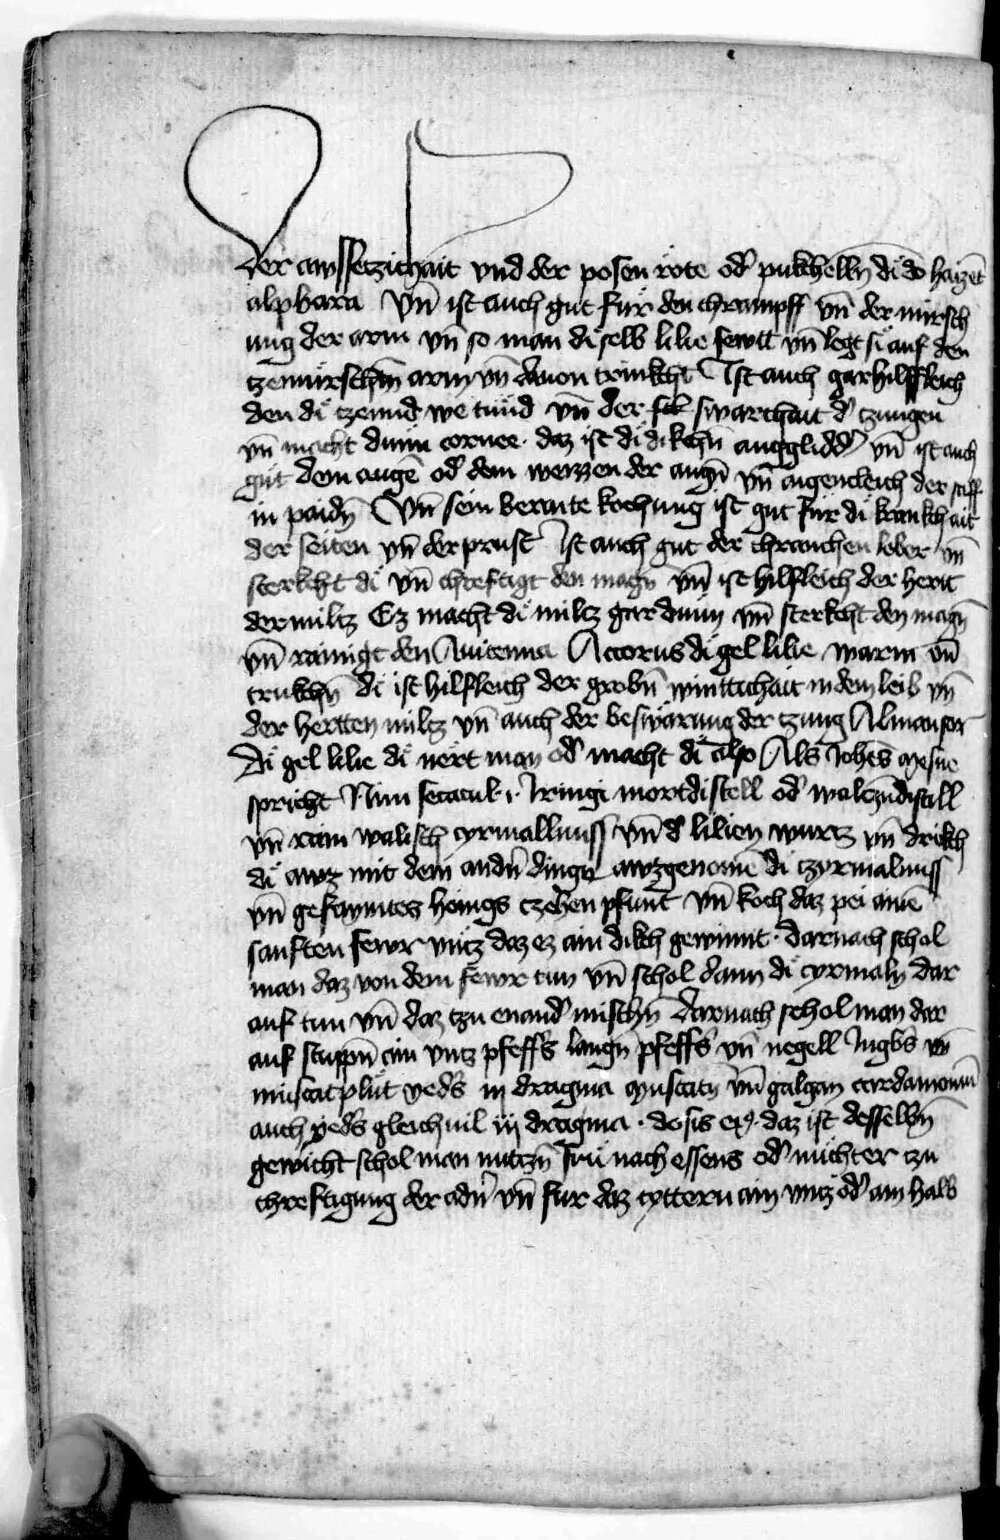 der awssetzichait vnd der posen röte od̄ pukchelln̄ dı̈ do haizē̄t
alpbara Vn̄ ist auch gut für den chrampff vn̄ der mürsch
ung der arm vn̄ so man di selb lilie sewtt vn̄ legt si auf den
tzemürschtn̄ arm vn̄ dauon trinkcht Ist auch gar hilffleich
den dı̈ tzennd we tuͤnd vn̄ der swarchait d̄ tzungen
vn̄ macht dünn cornee · daz ist dı̈ dikchn̄ augglidd̄ vn̄ ist auch
gut dem augē od̄ dem weizzen der augn̄ vn̄ aigencleich der saff
in paidn̄ Vn̄ sein beraite kochung ist gut für dı̈ krankchait
der seiten vn̄ der prust Ist auch gut der chranchen leber vn̄
sterkcht dı̈ vn̄ chreftigt den magn̄ vn̄ ist hilfleich der hertt
der miltz Ez macht dı̈ miltz gar dünn vn̄ sterkcht den magn̄
vn̄ rainigt den Auicenna Accorus dı̈ gel lilie warm vn̄
trukchn̄ dı̈ ist hilfleich der grobn̄ winttichait in dem leib vn̄
der hertten miltz vn̄ auch der beswärung der tzung Almansor
Dı̈ gel lilie dı̈ nert man od̄ macht dı̈ also Als Johēs Mesue
spricht Nim secacul · i · Jringi mortdistell od̄ walczndistall
vn̄ rain walisch cyrmallnuss vn̄ d̄ lilien wurtz vn̄ drikch
dı̈ awz mit dem andn̄ dingn̄ awzgenomē dı̈ tzyrmalnuss
vn̄ gefaymtes honigs czehen pfunt vn̄ koch daz pei ainē
sanften fewr vntz daz ez ain dikch gewinnt · darnach schol
man daz von dem fewr tun vn̄ schol dann dı̈ cyrmaln dar
auf tun vn̄ daz tzu enand̄ mischn̄ darnach schol man dar
auf stuppn̄ ain vntz pfeffs langn̄ pfeffs vn̄ negell Ingbs vn̄
muscatpluͤt yeds in dragma Muscatn vn̄ galgan cardamomū
auch yeds gleich uil iij dragma · dosis ei9 · daz ist desselbn̄
gewicht schol man nutzn̄ fruͤ nach essens od̄ nuͤchter tzu
chreftigung der adn̄ vn̄ für daz cyttern ain vntz od̄ ain halb